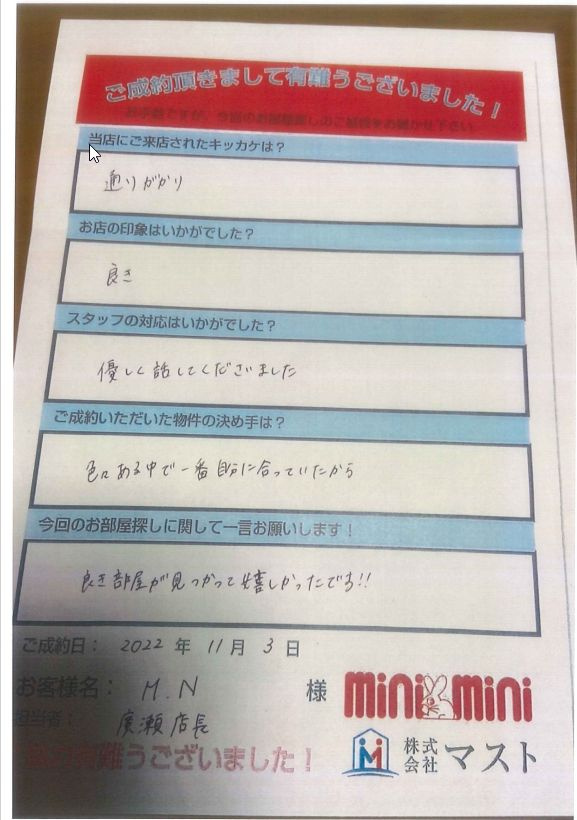 ご成約頂きまして有難うございました！
お手数ですが、今回のお部屋探しのご感想をお聞かせ下さい
当店にご来店されたキッカケは？
通りがかり
お店の印象はいかがでした？
良き
スタッフの対応はいかがでした？
優しく話してくださいました
ご成約いただいた物件の決め手は？
色々ある中で一番自分に合っていたから
今回のお部屋探しに関して一言お願いします！
良き部屋が見つかって嬉しかったです!!
ご成約日： 2022 年 11 月 3 日
お客様名： M.N 様
minimini
担当者： 廣瀬店長
株式会社マスト
有難うございました！